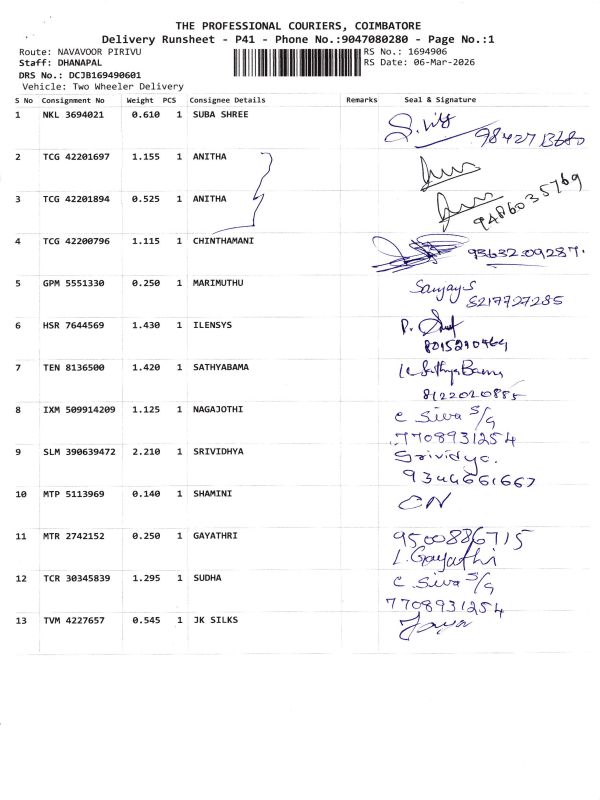 THE PROFESSIONAL COURIERS, COIMBATORE
Delivery Runsheet - P41 - Phone No.:9047080280 - Page No.:1
Route: NAVAVOOR PIRIVU
RS No.: 1694906
Staff: DHANAPAL
RS Date: 06-Mar-2026
DRS No.: DCJB169490601
Vehicle: Two Wheeler Delivery
S No Consignment No Weight PCS Consignee Details Remarks Seal & Signature
1 NKL 3694021 0.610 1 SUBA SHREE
2 TCG 42201697 1.155 1 ANITHA
3 TCG 42201894 0.525 1 ANITHA
9486035769
4 TCG 42200796 1.115 1 CHINTHAMANI
9363209287.
5 GPM 5551330 0.250 1 MARIMUTHU
Sanjay S
8217727285
6 HSR 7644569 1.430 1 ILENSYS
7 TEN 8136500 1.420 1 SATHYABAMA
K SathyaBama
8122020885
8 IXM 509914209 1.125 1 NAGAJOTHI
C Siva S/G
7708931254
9 SLM 390639472 2.210 1 SRIVIDHYA
Srividya.
9344661667
10 MTP 5113969 0.140 1 SHAMINI
11 MTR 2742152 0.250 1 GAYATHRI
9500886715
L. Gayathri
12 TCR 30345839 1.295 1 SUDHA
C Siva S/G
7708931254
13 TVM 4227657 0.545 1 JK SILKS